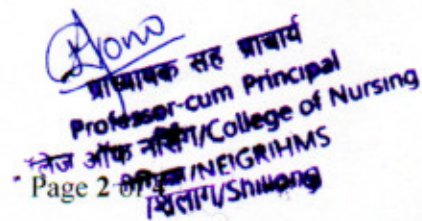 प्राध्यापक सह प्राचार्य
Professor-cum Principal
ऑफ नर्सिंग/College of Nursing
/NEIGRIHMS
शिलांग/Shillong
Page 2 of 4